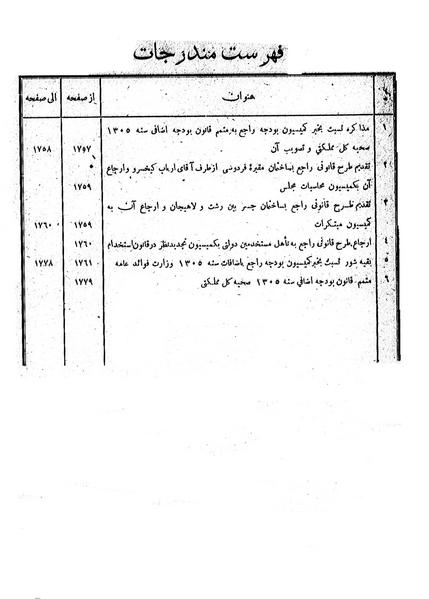 فهرست مندرجات
عنوان از صفحه الی صفحه
۱ مذاکره نسبت بخبر کمیسیون بودجه راجع به متمم قانون بودجه اضافی سنه ۱۳۰۵
صحیه کل مملکتی و تصویب آن ۱۷۵۷ ۱۷۵۸
۲ تقدیم طرح قانونی راجع بساختمان مقبرهٔ فردوسی از طرف آقای ارباب کیخسرو و ارجاع
آن بکمیسیون محاسبات مجلس ۱۷۵۹
۳ تقدیم طرح قانونی راجع بساختمان جسر بین رشت و لاهیجان و ارجاع آن به
کمیسیون مبتکرات ۱۷۵۹ ۱۷۶۰
۴ ارجاع طرح قانونی راجع به تأهل مستخدمین دولتی بکمیسیون تجدید نظر در قانون استخدام ۱۷۶۰
۵ بقیه شور نسبت بخبر کمیسیون بودجه راجع باضافات سنه ۱۳۰۵ وزارت فوائد عامه ۱۷۶۱ ۱۷۷۸
۶ متمم قانون بودجه اضافی سنه ۱۳۰۵ صحیه کل مملکتی ۱۷۷۹